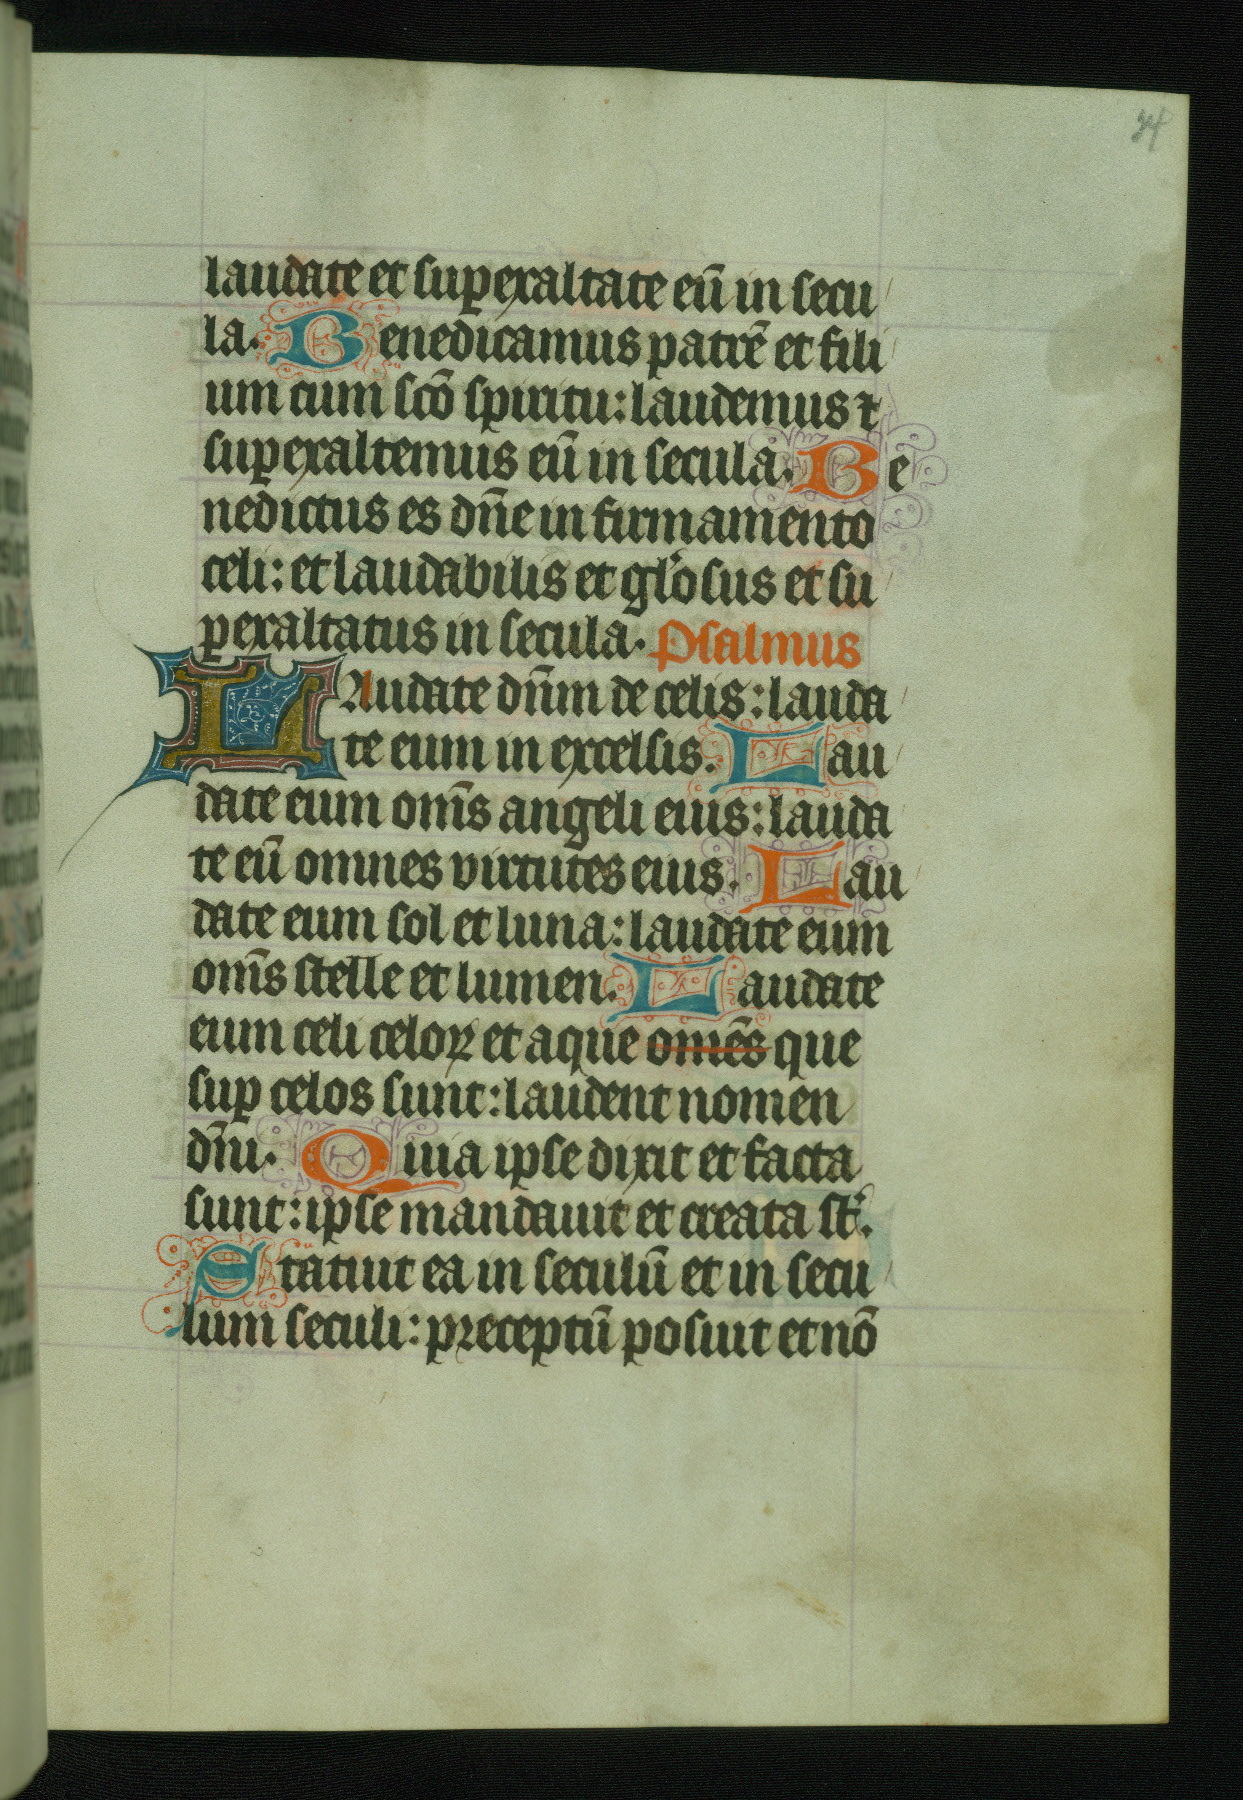 34
laudate et superaltate eū in secu
la. Benedicamus patrē et fili
um cum scō spiritu: laudemus ⁊
superexaltemus eū in secula. Be
nedictus es dn̄e in firmamento
celi: et laudabilis et gl'osus et su
ꝑexaltatus in secula. Psalmus
LAudate dn̄m de celis: lauda
te eum in excelsis. Lau
date eum om̄s angeli eius: lauda
te eū omnes virtutes eius. Lau
date eum sol et luna: laudate eum
om̄s stelle et lumen. Laudate
eum celi celoꝝ et aque om̄es que
suꝑ celos sunt: laudent nomen
dn̄i. Quia ipse dixit et facta
sunt: ipse mandauit et creata st̄.
Statuit ea in seculū et in secu
lum seculi: preceptū posuit et nō